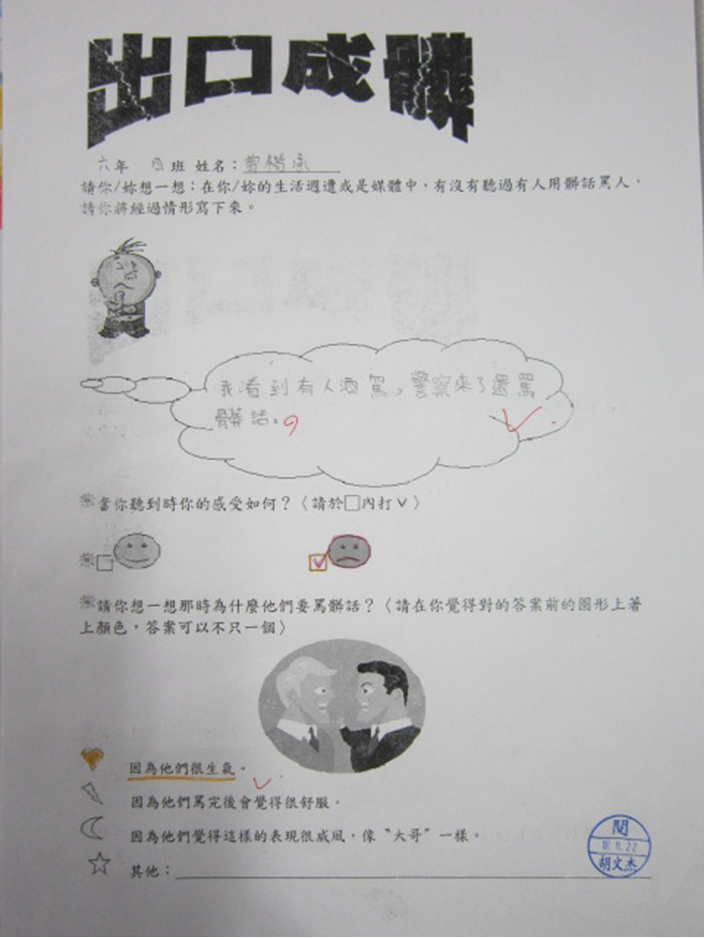 出口成髒
六年 四班 姓名：曾楷承
請你/妳想一想：在你/妳的生活週遭或是媒體中，有沒有聽過有人用髒話罵人，
請你將經過情形寫下來。
我看到有人酒駕，警察來了還罵
髒話。
當你聽到時你的感受如何？〈請於□內打ˇ〉
請你想一想那時為什麼他們要罵髒話？〈請在你覺得對的答案前的圖形上著
上顏色，答案可以不只一個〉
因為他們很生氣。
因為他們罵完後會覺得很舒服。
因為他們覺得這樣的表現很威風，像〝大哥〞一樣。
其他：
閱
胡文杰